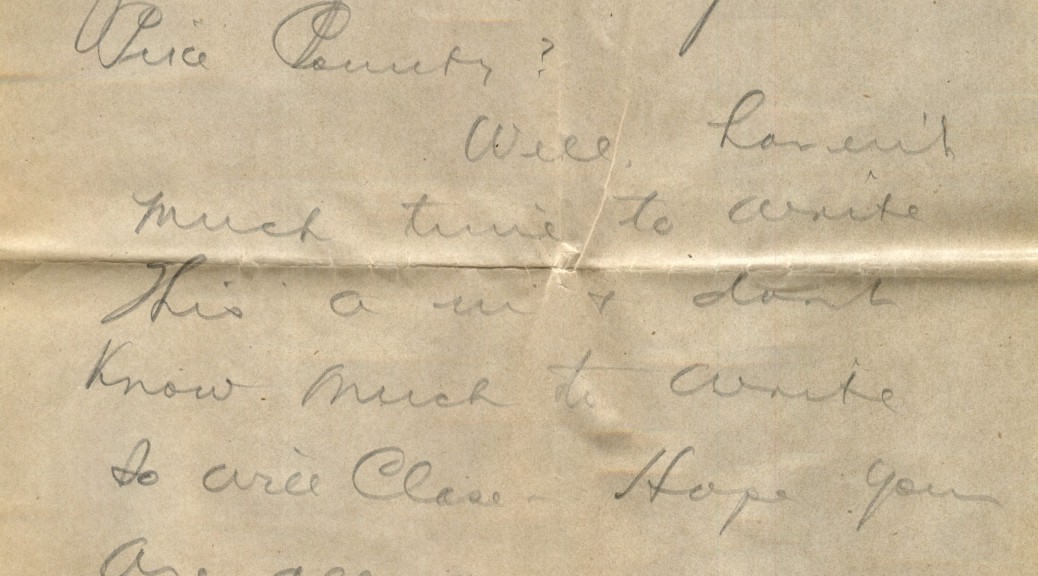 Price County?
Well, haven't
much time to write
This a m & don't
Know much to write
so will Close - Hope you
are all